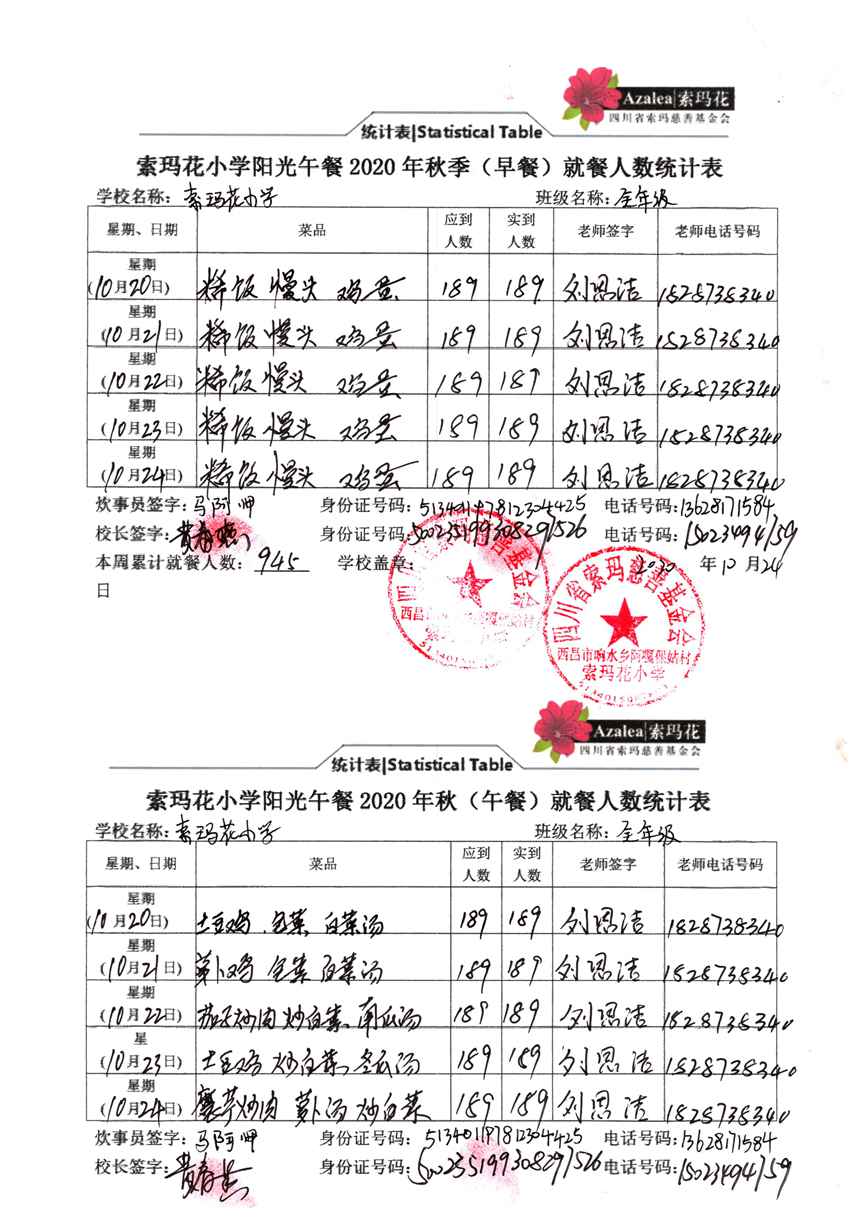 Azalea|索玛花
四川省索玛慈善基金会
统计表|Statistical Table
索玛花小学阳光午餐 2020 年秋季（早餐）就餐人数统计表
学校名称：索玛花小学 班级名称：全年级
星期、日期 菜品 应到人数 实到人数 老师签字 老师电话号码
星期
(10月20日) 稀饭 慢头 鸡蛋 189 189 刘思洁 1828738340
星期
(10月21日) 稀饭 慢头 鸡蛋 189 189 刘思洁 1828738340
星期
(10月22日) 稀饭 慢头 鸡蛋 189 189 刘思洁 1828738340
星期
(10月23日) 稀饭 慢头 鸡蛋 189 189 刘思洁 1828738340
星期
(10月24日) 稀饭 慢头 鸡蛋 189 189 刘思洁 1828738340
炊事员签字：马阿呷 身份证号码：513401197812304425 电话号码：13628171584
校长签字： 身份证号码：500235199308297526 电话号码：15023494759
本周累计就餐人数：945 学校盖章： 2020 年 10 月 24
日
四川省索玛慈善基金会
西昌市响水乡阿嘎保姑村
索玛花小学
Azalea|索玛花
四川省索玛慈善基金会
统计表|Statistical Table
索玛花小学阳光午餐 2020 年秋（午餐）就餐人数统计表
学校名称：索玛花小学 班级名称：全年级
星期、日期 菜品 应到人数 实到人数 老师签字 老师电话号码
星期
(10月20日) 土豆鸡 包菜 白菜汤 189 189 刘思洁 1828738340
星期
(10月21日) 萝卜鸡 包菜 白菜汤 189 189 刘思洁 1828738340
星期
(10月22日) 茄子炒肉 炒白菜 南瓜汤 189 189 刘思洁 1828738340
星
(10月23日) 土豆鸡 炒白菜 冬瓜汤 189 189 刘思洁 1828738340
星期
(10月24日) 炒肉 萝卜汤 炒白菜 189 189 刘思洁 1828738340
炊事员签字：马阿呷 身份证号码：513401197812304425 电话号码：13628171584
校长签字： 身份证号码：500235199308297526 电话号码：15023494759